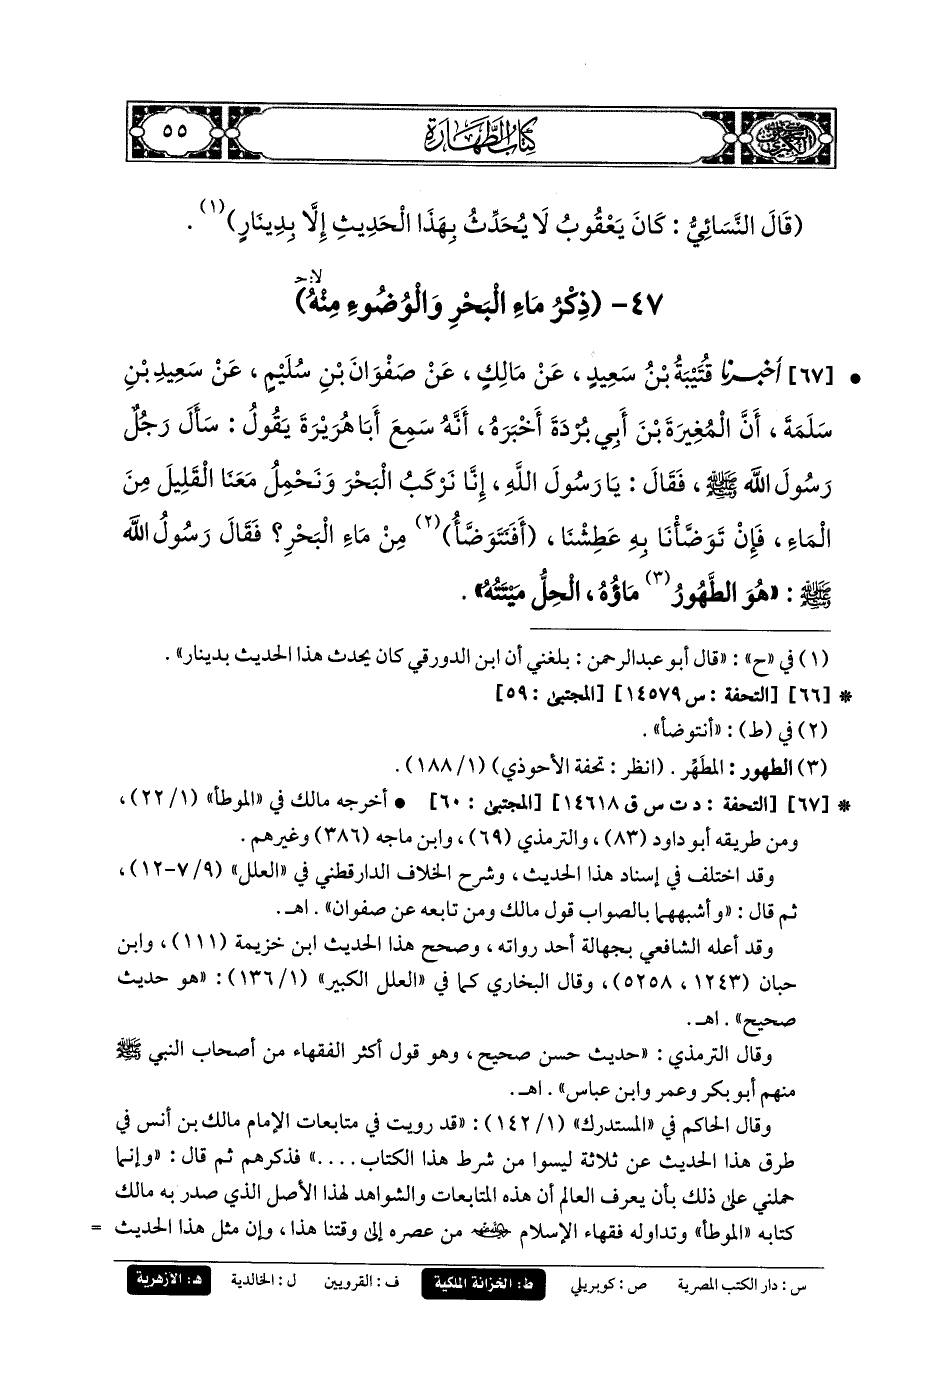 السنن الكبرى
كتاب الطهارة
٥٥
(قَالَ النَّسَائِيُّ : كَانَ يَعْقُوبُ لَا يُحَدِّثُ بِهَذَا الْحَدِيثِ إِلَّا بِدِينَارٍ)(١) .
٤٧- (ذِكْرُ مَاءِ الْبَحْرِ وَالْوُضُوءِ مِنْهُ)
• [٦٧] أخبرنا قُتَيْبَةُ بْنُ سَعِيدٍ ، عَنْ مَالِكٍ ، عَنْ صَفْوَانَ بْنِ سُلَيْمٍ ، عَنْ سَعِيدِ بْنِ
سَلَمَةَ ، أَنَّ الْمُغِيرَةَ بْنَ أَبِي بُرْدَةَ أَخْبَرَهُ ، أَنَّهُ سَمِعَ أَبَا هُرَيْرَةَ يَقُولُ : سَأَلَ رَجُلٌ
رَسُولَ اللَّهِ ﷺ ، فَقَالَ : يَا رَسُولَ اللَّهِ ، إِنَّا نَرْكَبُ الْبَحْرَ وَنَحْمِلُ مَعَنَا الْقَلِيلَ مِنَ
الْمَاءِ ، فَإِنْ تَوَضَّأْنَا بِهِ عَطِشْنَا ، (أَفَنَتَوَضَّأُ)(٢) مِنْ مَاءِ الْبَحْرِ ؟ فَقَالَ رَسُولُ اللَّهِ
ﷺ : «هُوَ الطَّهُورُ(٣) مَاؤُهُ ، الْحِلُّ مَيْتَتُهُ» .
(١) في «ح» : «قال أبو عبدالرحمن : بلغني أن ابن الدورقي كان يحدث هذا الحديث بدينار» .
* [٦٦] [التحفة : س ١٤٥٧٩] [المجتبى : ٥٩]
(٢) في (ط) : «أنتوضأ» .
(٣) الطهور : المطَهِّر . (انظر : تحفة الأحوذي) (١/ ١٨٨) .
* [٦٧] [التحفة : د ت س ق ١٤٦١٨] [المجتبى : ٦٠] • أخرجه مالك في «الموطأ» (١/ ٢٢) ،
ومن طريقه أبو داود (٨٣) ، والترمذي (٦٩) ، وابن ماجه (٣٨٦) وغيرهم .
وقد اختلف في إسناد هذا الحديث ، وشرح الخلاف الدارقطني في «العلل» (٩/ ٧-١٢) ،
ثم قال : «وأشبهها بالصواب قول مالك ومن تابعه عن صفوان» . اهـ.
وقد أعله الشافعي بجهالة أحد رواته ، وصحح هذا الحديث ابن خزيمة (١١١) ، وابن
حبان (١٢٤٣ ، ٥٢٥٨) ، وقال البخاري كما في «العلل الكبير» (١/ ١٣٦) : «هو حديث
صحيح» . اهـ.
وقال الترمذي : «حديث حسن صحيح ، وهو قول أكثر الفقهاء من أصحاب النبي ﷺ
منهم أبو بكر وعمر وابن عباس» . اهـ.
وقال الحاكم في «المستدرك» (١/ ١٤٢) : «قد رويت في متابعات الإمام مالك بن أنس في
طرق هذا الحديث عن ثلاثة ليسوا من شرط هذا الكتاب ....» فذكرهم ثم قال : «وإنما
حملني على ذلك بأن يعرف العالم أن هذه المتابعات والشواهد لهذا الأصل الذي صدر به مالك
كتابه «الموطأ» وتداوله فقهاء الإسلام من عصره إلى وقتنا هذا ، وإن مثل هذا الحديث =
س : دار الكتب المصرية ص : كوبريلي ط : الخزانة الملكية ف : القرويين ل : الخالدية هـ : الأزهرية